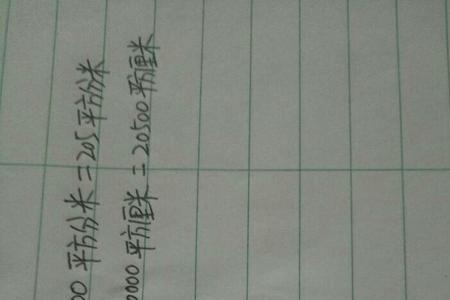 00平方分米=205平方分米
0000平方厘米=20500平方厘米